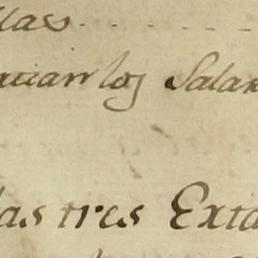 llas
los Salar
las tres Exta